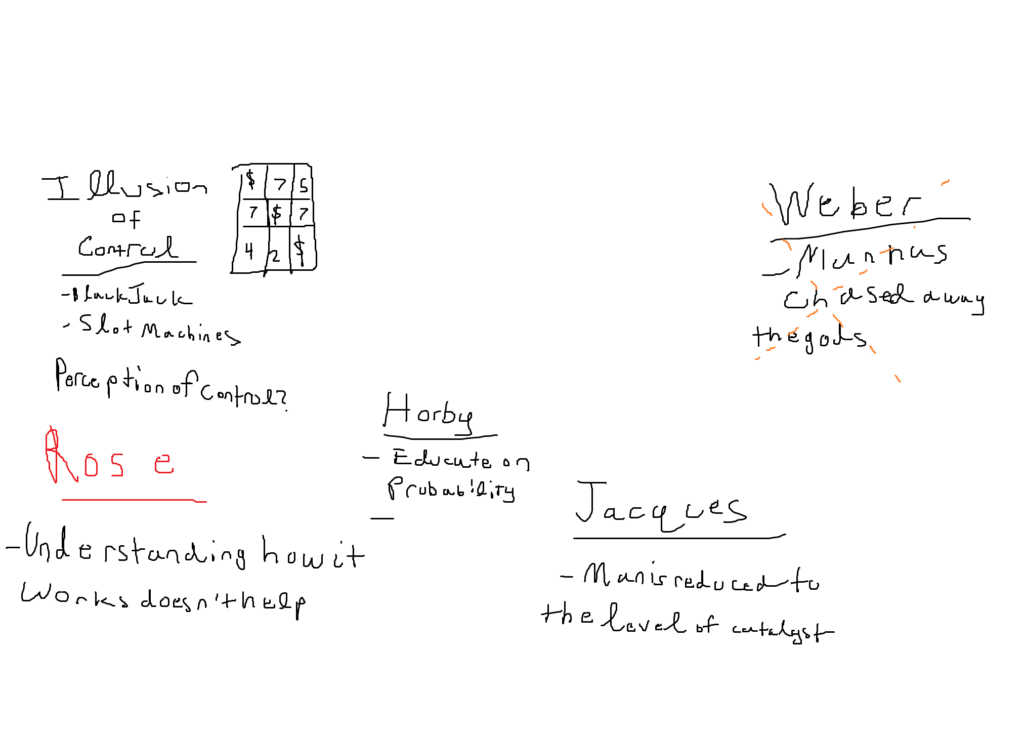 Illusion
of
Control
- BlackJack
- Slot Machines
Perception of control?
$ 7 5
7 $ 7
4 2 $
Rose
- Understanding how it
works doesn't help
Horby
- Educate on
Probability
-
Jacques
- Man is reduced to
the level of catalyst
Weber
- Man has
chased away
the gods